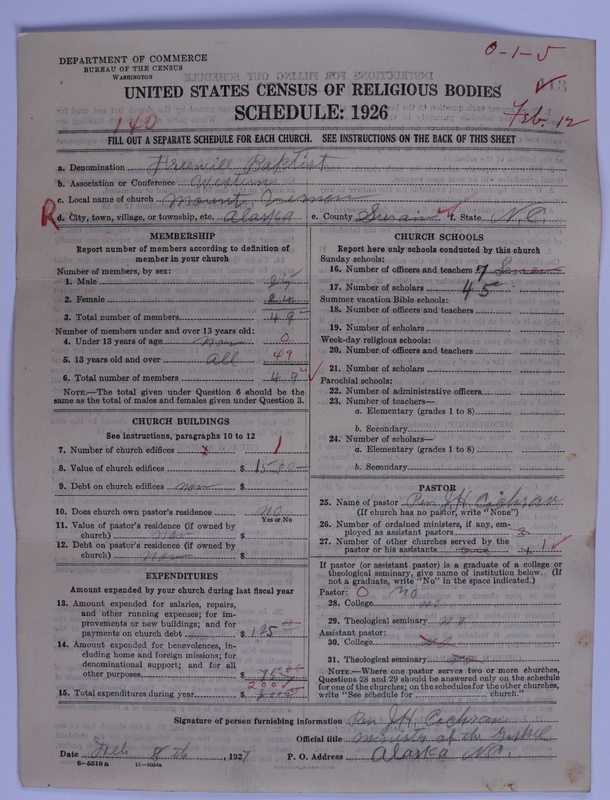 0-1-5
DEPARTMENT OF COMMERCE
BUREAU OF THE CENSUS
WASHINGTON
UNITED STATES CENSUS OF RELIGIOUS BODIES
SCHEDULE: 1926
140
Feb. 12
FILL OUT A SEPARATE SCHEDULE FOR EACH CHURCH. SEE INSTRUCTIONS ON THE BACK OF THIS SHEET
a. Denomination Freewill Baptist
b. Association or Conference Western
c. Local name of church Mount Vernon
R d. City, town, village, or township, etc. Alaska e. County f. State N.C.
MEMBERSHIP
Report number of members according to definition of
member in your church
Number of members, by sex:
1. Male 25
2. Female 24
3. Total number of members 49
Number of members under and over 13 years old:
4. Under 13 years of age non 0
5. 13 years old and over all 49
6. Total number of members 49
NOTE.—The total given under Question 6 should be
same as the total of males and females given under Question 3.
CHURCH BUILDINGS
See instructions, paragraphs 10 to 12
7. Number of church edifices 1
8. Value of church edifices $ 1500
9. Debt on church edifices non $
10. Does church own pastor's residence no
Yes or No
11. Value of pastor's residence (if owned by
church) non $
12. Debt on pastor's residence (if owned by
church) non $
EXPENDITURES
Amount expended by your church during last fiscal year
13. Amount expended for salaries, repairs,
and other running expenses; for im-
provements or new buildings; and for
payments on church debt $ 125 00
14. Amount expended for benevolences, in-
cluding home and foreign missions; for
denominational support; and for all
other purposes $ 75 00
15. Total expenditures during year $ 200
CHURCH SCHOOLS
Report here only schools conducted by this church
Sunday schools:
16. Number of officers and teachers 7 Seven
17. Number of scholars 45
Summer vacation Bible schools:
18. Number of officers and teachers
19. Number of scholars
Week-day religious schools:
20. Number of officers and teachers
21. Number of scholars
Parochial schools:
22. Number of administrative officers
23. Number of teachers—
a. Elementary (grades 1 to 8)
b. Secondary
24. Number of scholars—
a. Elementary (grades 1 to 8)
b. Secondary
PASTOR
25. Name of pastor Rev J.H. Cochran
(If church has no pastor, write "None")
26. Number of ordained ministers, if any, em-
ployed as assistant pastors
27. Number of other churches served by the
pastor or his assistants one 1
If pastor (or assistant pastor) is a graduate of a college or
theological seminary, give name of institution below. (If
not a graduate, write "No" in the space indicated.)
Pastor: 0 no
28. College no
29. Theological seminary no
Assistant pastor:
30. College no
31. Theological seminary
NOTE.—Where one pastor serves two or more churches,
Questions 28 and 29 should be answered only on the schedule
for one of the churches; on the schedules for the other churches,
write "See schedule for church."
Signature of person furnishing information Rev J.H. Cochran
Official title minister of the Gospel
Date Feb 8th 1927 P. O. Address Alaska N.C.
8-5518a 11-9034a